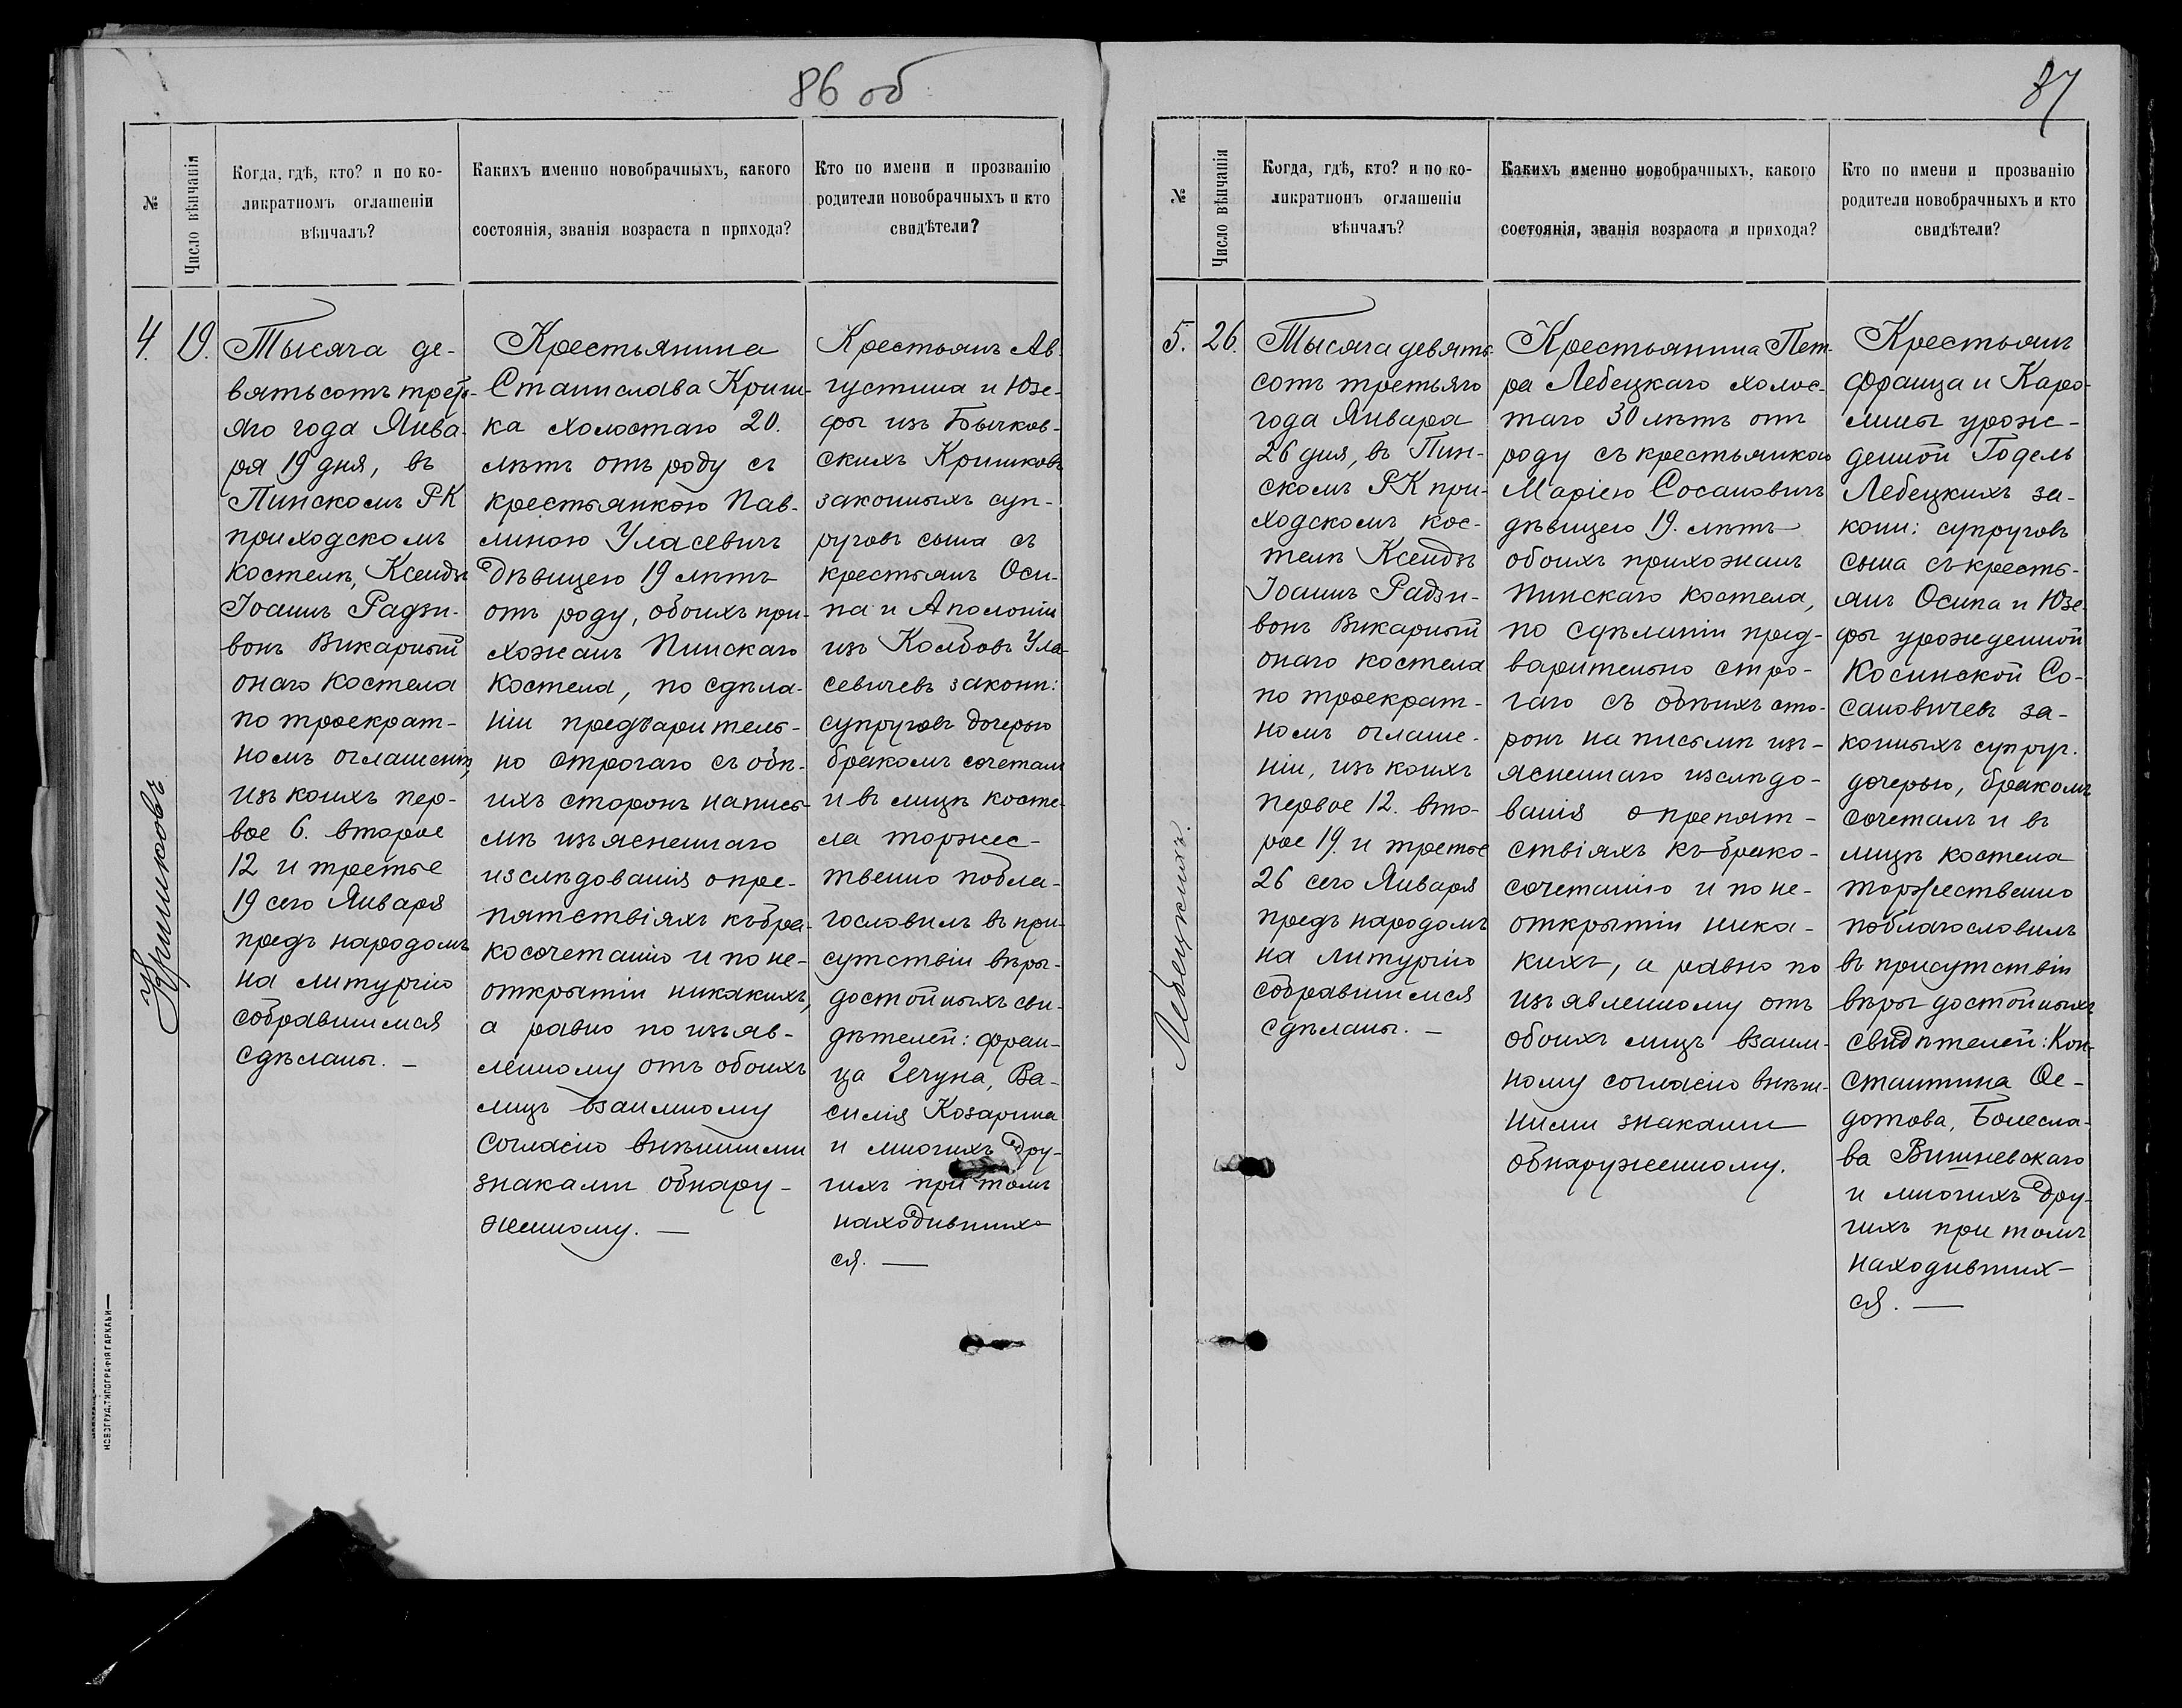 86 об
№
Число вѣнчанія
Когда, гдѣ, кто? и по ко-
ликратномъ оглашеніи
вѣнчалъ?
Какихъ именно новобрачныхъ, какого
состоянія, званія возраста и прихода?
Кто по имени и прозванію
родители новобрачныхъ и кто
свидѣтели?
4.
19.
Тысяча де-
вятьсотъ треть-
яго года Янва-
ря 19 дня, въ
Пинскомъ РК
приходскомъ
костелѣ, Ксендзъ
Іоаннъ Радзи-
вонъ Викарный
онаго костела
по троекрат-
номъ оглашеніи,
изъ коихъ пер-
вое 6. второе
12 и третье
19 сего Января
предъ народомъ
на литургію
собравшимся
сдѣланы. —
Кришковъ
Крестьянина
Станислава Криш-
ка холостаго 20.
лѣтъ отъ роду съ
крестьянкою Пав-
линою Уласевичъ
Дѣвицею 19 лѣтъ
отъ роду, обоихъ при-
хожанъ Пинскаго
костела, по сдѣла-
ніи предварительн-
но строгаго съ обѣ-
ихъ сторонъ на пись-
мѣ изъясненнаго
изслѣдованія о пре-
пятствіяхъ къ бра-
косочетанію и по не-
открытіи никакихъ,
а равно по изъяв-
ленному отъ обоихъ
лицъ взаимному
согласію внѣшними
знаками обнару-
женному. —
Крестьянъ Ав-
густина и Юзе-
фы изъ Бычков-
скихъ Кришковъ
законныхъ суп-
руговъ сына съ
крестьянъ Оси-
па и Аполоніи
изъ Колбовъ Ула-
севичевъ законн:
супруговъ дочерью
бракомъ сочеталъ
и въ лицѣ косте-
ла торжес-
твенно побла-
гословилъ въ при-
сутствіи вѣры-
достойныхъ сви-
дѣтелей: Фран-
ца Чечуна, Ва-
силія Козарина
и многихъ дру-
гихъ при томъ
находившихъ
ся. —
НОВОГРУД. ТИПОГРАФІЯ ГАРКАВИ
87
№
Число вѣнчанія
Когда, гдѣ, кто? и по ко-
ликратномъ оглашеніи
вѣнчалъ?
Какихъ именно новобрачныхъ, какого
состоянія, званія возраста и прихода?
Кто по имени и прозванію
родители новобрачныхъ и кто
свидѣтели?
5.
26.
Тысяча девять-
сотъ третьяго
года Января
26 дня, въ Пин-
скомъ РК при-
ходскомъ кос-
телѣ Ксендзъ
Іоаннъ Радзи-
вонъ Викарный
онаго костела
по троекрат-
номъ оглаше-
ніи, изъ коихъ
первое 12. вто-
рое 19. и третье
26 сего Января
предъ народомъ
на литургію
собравшимся
сдѣланы. —
Лебецкихъ.
Крестьянина Пет-
ра Лебецкаго холос-
таго 30 лѣтъ отъ
роду съ крестьянкою
Маріею Сосановичъ
дѣвицею 19. лѣтъ
обоихъ прихожанъ
Пинскаго костела,
по сдѣланіи пред-
варительно стро-
гаго съ обѣихъ сто-
ронъ на письмѣ изъ-
ясненнаго изслѣдо-
ванія о препят-
ствіяхъ къ брако-
сочетанію и по не-
открытіи ника-
кихъ, а равно по
изъявленному отъ
обоихъ лицъ взаим-
ному согласію внѣш-
ними знаками
обнаруженному.
Крестьянъ
Франца и Каро-
лины урож-
денной Годель
Лебецкихъ за-
конн: супруговъ
сына съ кресть-
янъ Осипа и Юзе-
фы урожденной
Косинской Со-
сановичевъ за-
конныхъ супруг.
дочерью, бракомъ
сочеталъ и въ
лицѣ костела
торжественно
поблагословилъ
въ присутствіи
вѣры достойныхъ
свидѣтелей: Кон-
стантина Ѳе-
дотова, Болесла-
ва Вишневскаго
и многихъ дру-
гихъ при томъ
находивших-
ся. —